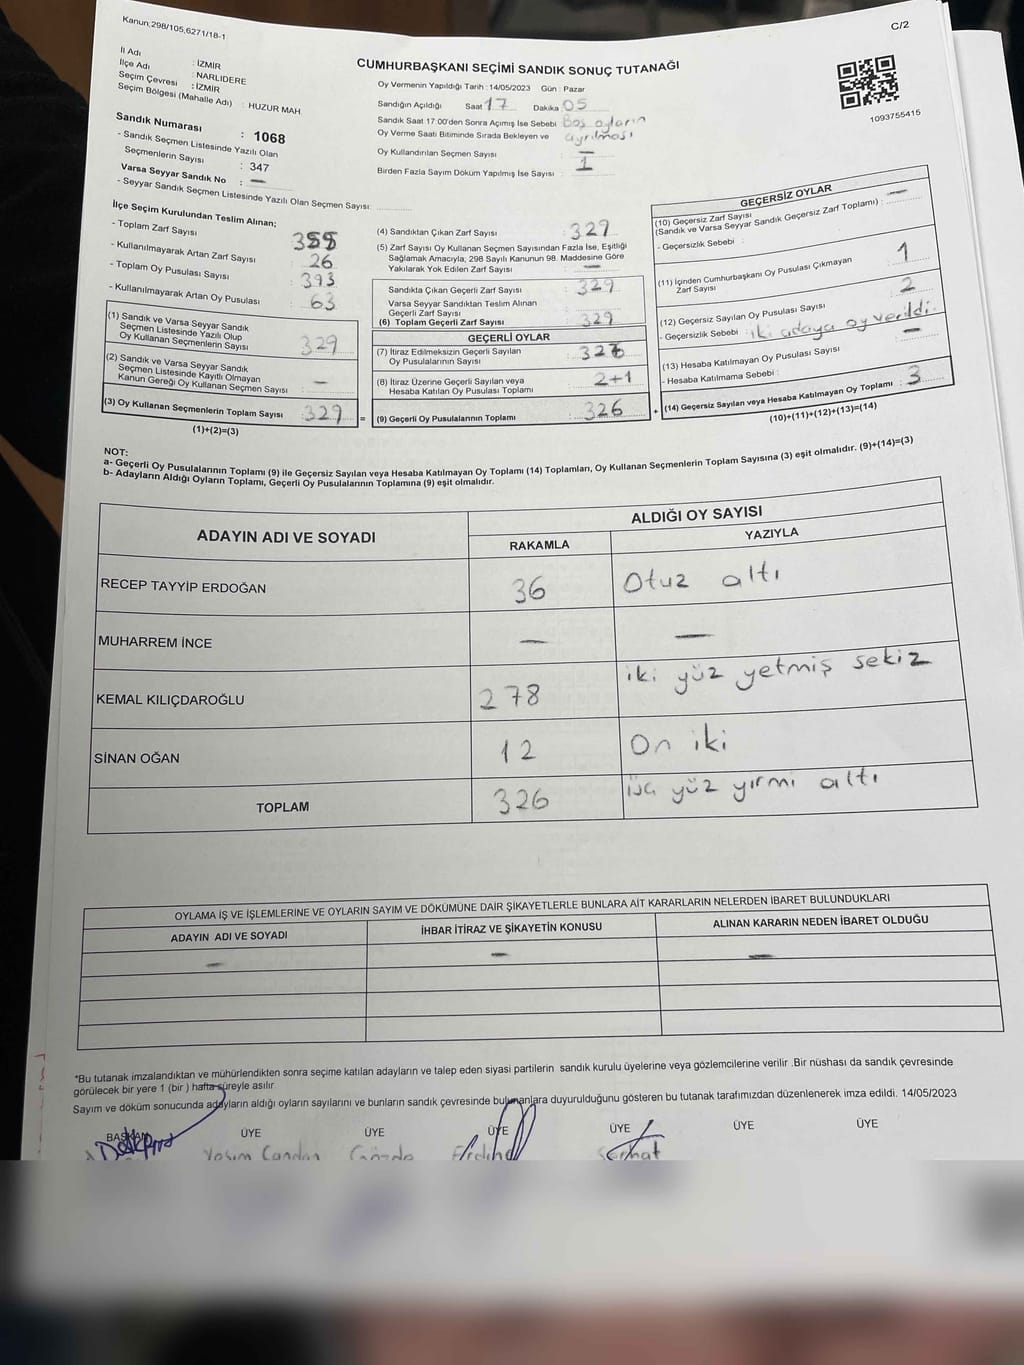 Kanun;298/105,6271/18-1
C/2
İl Adı : İZMİR
İlçe Adı : NARLIDERE
Seçim Çevresi : İZMİR
Seçim Bölgesi (Mahalle Adı) : HUZUR MAH
Sandık Numarası : 1068
- Sandık Seçmen Listesinde Yazılı Olan
Seçmenlerin Sayısı : 347
Varsa Seyyar Sandık No : —
- Seyyar Sandık Seçmen Listesinde Yazılı Olan Seçmen Sayısı:
CUMHURBAŞKANI SEÇİMİ SANDIK SONUÇ TUTANAĞI
Oy Vermenin Yapıldığı Tarih : 14/05/2023 Gün : Pazar
Sandığın Açıldığı Saat 17 Dakika 05
Sandık Saat 17.00'den Sonra Açımış İse Sebebi Boş oyların
Oy Verme Saati Bitiminde Sırada Bekleyen ve ayrılması
Oy Kullandırılan Seçmen Sayısı : —
Birden Fazla Sayım Döküm Yapılmış İse Sayısı : 1
1093755415
İlçe Seçim Kurulundan Teslim Alınan;
- Toplam Zarf Sayısı : 355
- Kullanılmayarak Artan Zarf Sayısı : 26
- Toplam Oy Pusulası Sayısı : 393
- Kullanılmayarak Artan Oy Pusulası : 63
(1) Sandık ve Varsa Seyyar Sandık
Seçmen Listesinde Yazılı Olup
Oy Kullanan Seçmenlerin Sayısı : 329
(2) Sandık ve Varsa Seyyar Sandık
Seçmen Listesinde Kayıtlı Olmayan
Kanun Gereği Oy Kullanan Seçmen Sayısı : —
(3) Oy Kullanan Seçmenlerin Toplam Sayısı : 329 =
(1)+(2)=(3)
(4) Sandıktan Çıkan Zarf Sayısı : 329
(5) Zarf Sayısı Oy Kullanan Seçmen Sayısından Fazla İse, Eşitliği
Sağlamak Amacıyla, 298 Sayılı Kanunun 98. Maddesine Göre
Yakılarak Yok Edilen Zarf Sayısı : —
Sandıkta Çıkan Geçerli Zarf Sayısı : 329
Varsa Seyyar Sandıktan Teslim Alınan
Geçerli Zarf Sayısı :
(6) Toplam Geçerli Zarf Sayısı : 329
GEÇERLİ OYLAR
(7) İtiraz Edilmeksizin Geçerli Sayılan
Oy Pusulalarının Sayısı :
(8) İtiraz Üzerine Geçerli Sayılan veya
Hesaba Katılan Oy Pusulası Toplamı : 2+1
(9) Geçerli Oy Pusulalarının Toplamı : 326 +
GEÇERSİZ OYLAR
(10) Geçersiz Zarf Sayısı
(Sandık ve Varsa Seyyar Sandık Geçersiz Zarf Toplamı) : —
- Geçersizlik Sebebi :
(11) İçinden Cumhurbaşkanı Oy Pusulası Çıkmayan
Zarf Sayısı : 1
(12) Geçersiz Sayılan Oy Pusulası Sayısı : 2
- Geçersizlik Sebebi : iki adaya oy verildi.
(13) Hesaba Katılmayan Oy Pusulası Sayısı : —
- Hesaba Katılmama Sebebi :
(14) Geçersiz Sayılan veya Hesaba Katılmayan Oy Toplamı : 3
(10)+(11)+(12)+(13)=(14)
NOT:
a- Geçerli Oy Pusulalarının Toplamı (9) ile Geçersiz Sayılan veya Hesaba Katılmayan Oy Toplamı (14) Toplamları, Oy Kullanan Seçmenlerin Toplam Sayısına (3) eşit olmalıdır. (9)+(14)=(3)
b- Adayların Aldığı Oyların Toplamı, Geçerli Oy Pusulalarının Toplamına (9) eşit olmalıdır.
ADAYIN ADI VE SOYADI
ALDIĞI OY SAYISI
RAKAMLA YAZIYLA
RECEP TAYYİP ERDOĞAN 36 Otuz altı
MUHARREM İNCE — —
KEMAL KILIÇDAROĞLU 278 iki yüz yetmiş sekiz
SİNAN OĞAN 12 On iki
TOPLAM 326 üç yüz yirmi altı
OYLAMA İŞ VE İŞLEMLERİNE VE OYLARIN SAYIM VE DÖKÜMÜNE DAİR ŞİKAYETLERLE BUNLARA AİT KARARLARIN NELERDEN İBARET BULUNDUKLARI
ADAYIN ADI VE SOYADI İHBAR İTİRAZ VE ŞİKAYETİN KONUSU ALINAN KARARIN NEDEN İBARET OLDUĞU
— — —
*Bu tutanak imzalandıktan ve mühürlendikten sonra seçime katılan adayların ve talep eden siyasi partilerin sandık kurulu üyelerine veya gözlemcilerine verilir .Bir nüshası da sandık çevresinde
görülecek bir yere 1 (bir ) hafta süreyle asılır.
Sayım ve döküm sonucunda adayların aldığı oyların sayılarını ve bunların sandık çevresinde bulunanlara duyurulduğunu gösteren bu tutanak tarafımızdan düzenlenerek imza edildi. 14/05/2023
BAŞKAN ÜYE ÜYE ÜYE ÜYE ÜYE ÜYE
Serhat